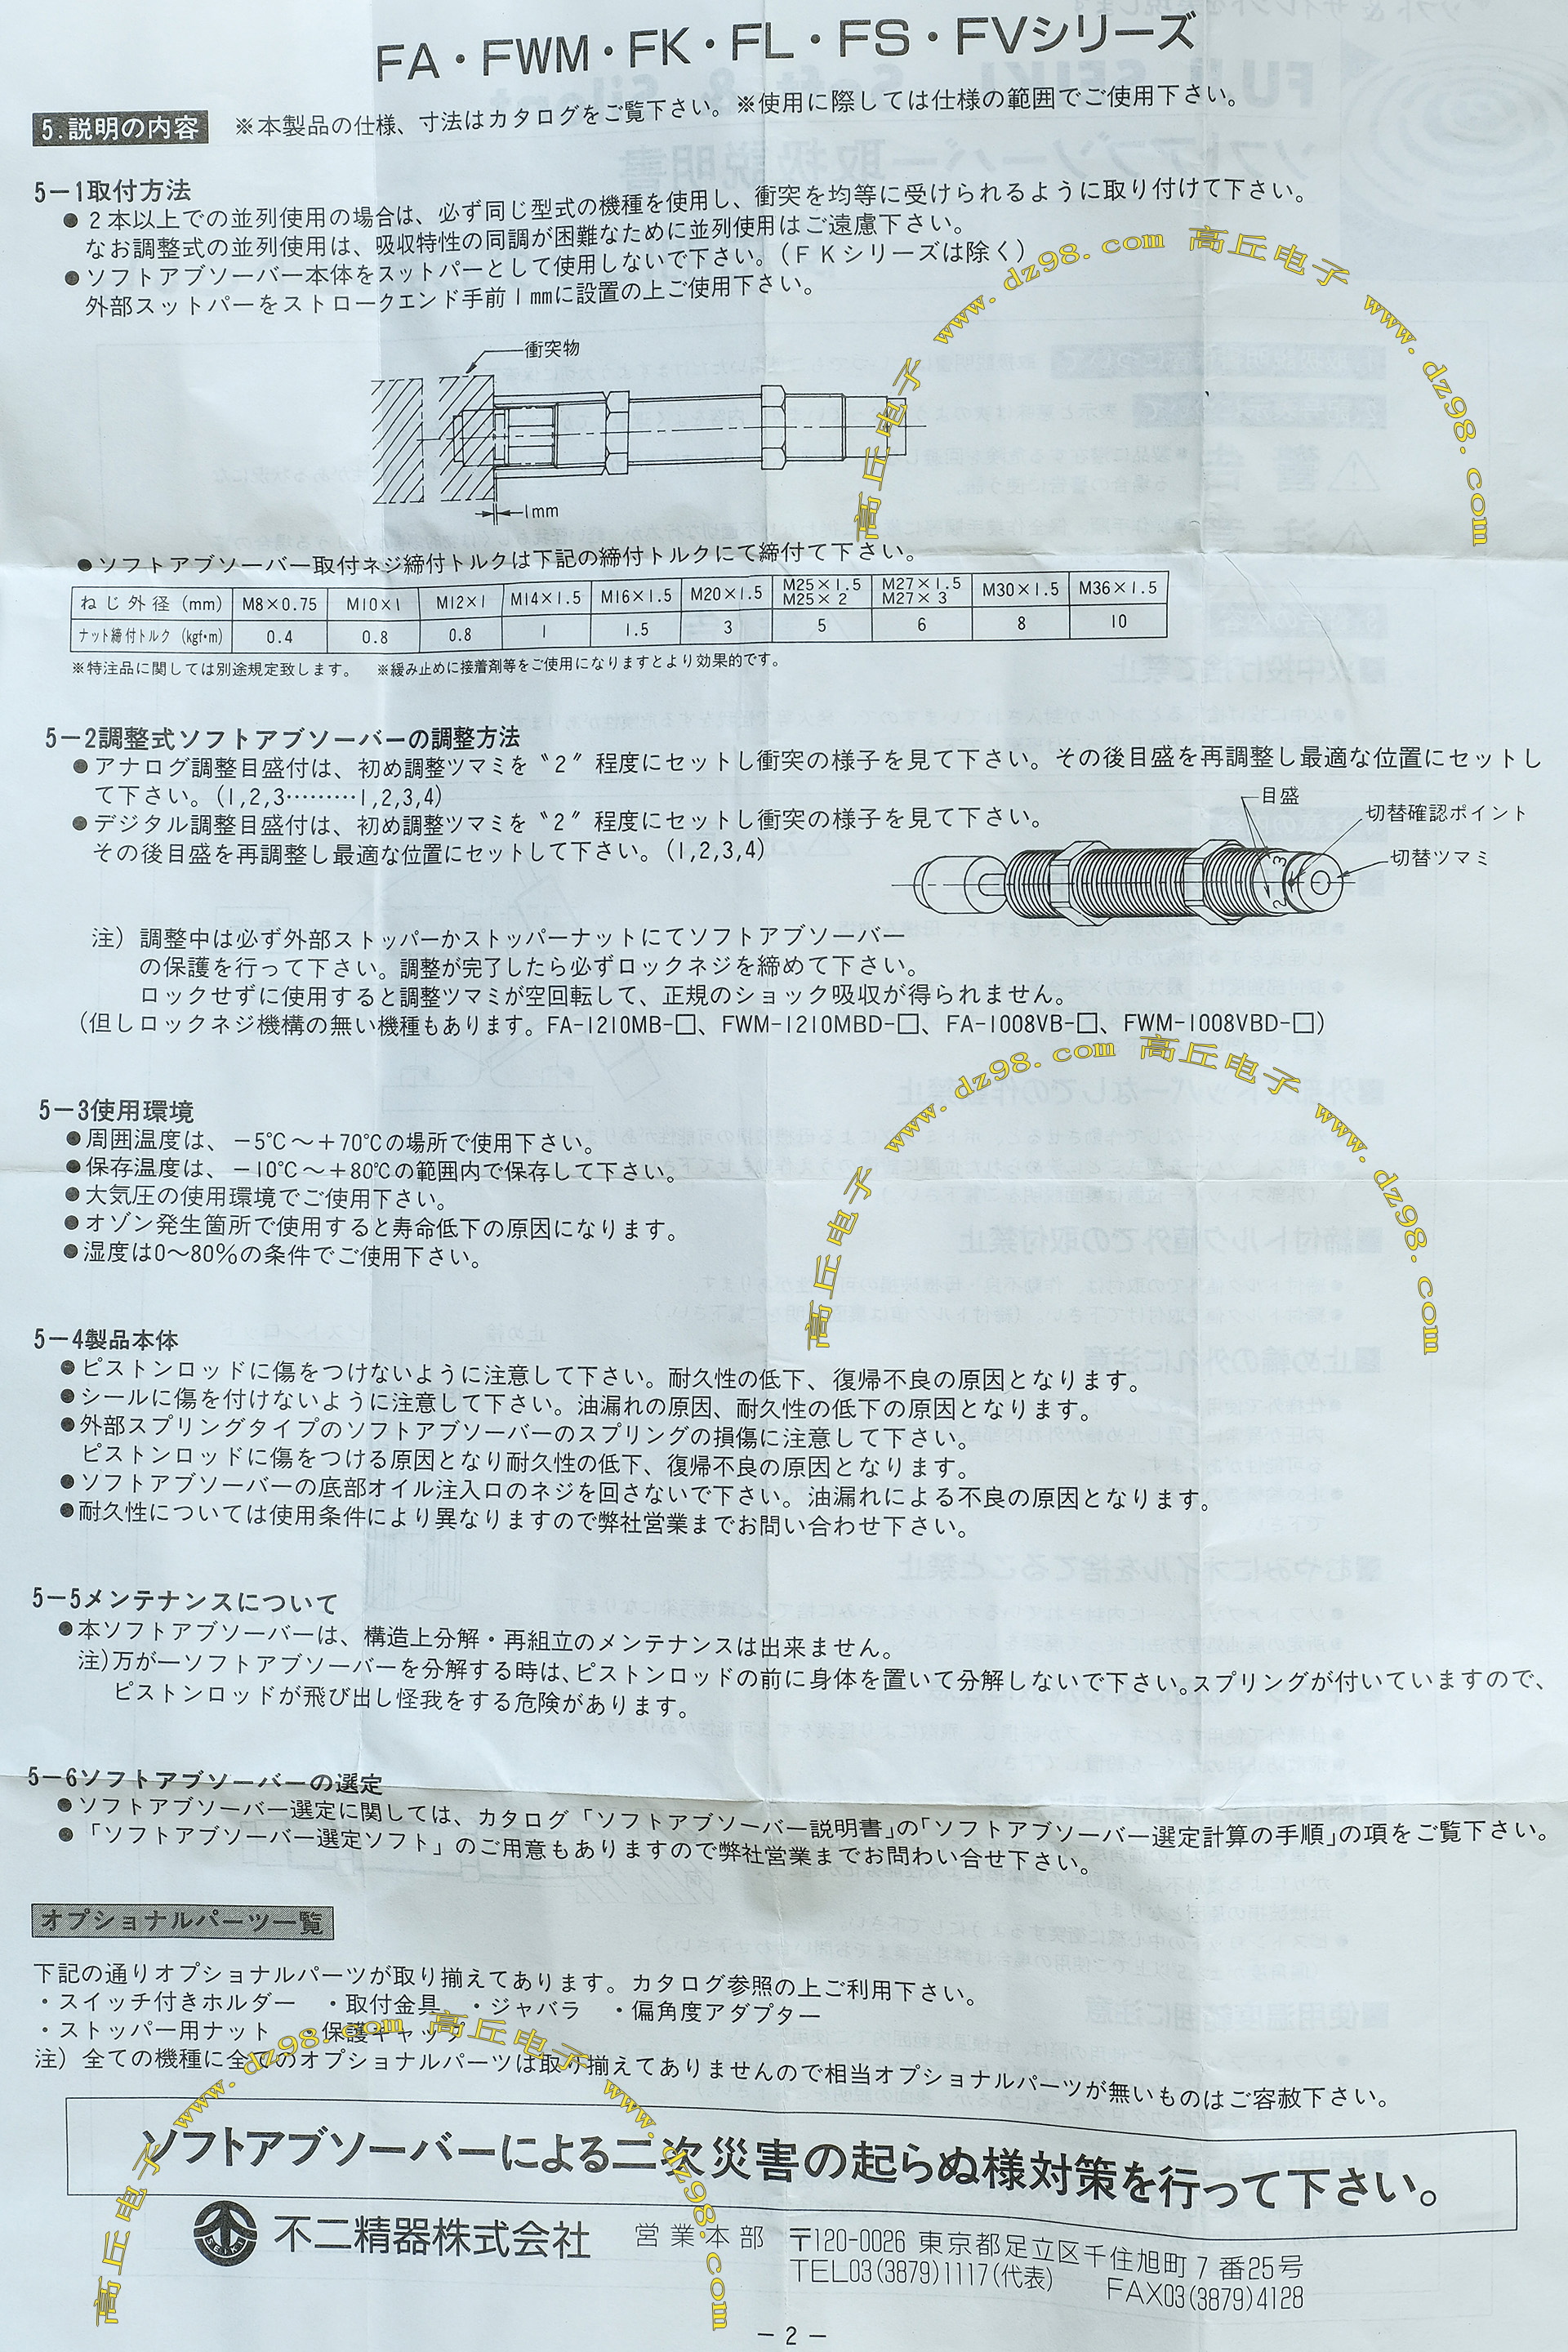 FA・FWM・FK・FL・FS・FVシリーズ
5.説明の内容 ※本製品の仕様、寸法はカタログをご覧下さい。※使用に際しては仕様の範囲でご使用下さい。
5－1取付方法
●2本以上での並列使用の場合は、必ず同じ型式の機種を使用し、衝突を均等に受けられるように取り付けて下さい。
なお調整式の並列使用は、吸収特性の同調が困難なために並列使用はご遠慮下さい。（FKシリーズは除く）
●ソフトアブソーバー本体をスットパーとして使用しないで下さい。
外部スットパーをストロークエンド手前1mmに設置の上ご使用下さい。
衝突物
1mm
●ソフトアブソーバー取付ネジ締付トルクは下記の締付トルクにて締付て下さい。
ねじ外径 (mm) M8×0.75 M10×1 M12×1 M14×1.5 M16×1.5 M20×1.5 M25×1.5 M25×2 M27×1.5 M27×3 M30×1.5 M36×1.5
ナット締付トルク (kgf・m) 0.4 0.8 0.8 1 1.5 3 5 6 8 10
※特注品に関しては別途規定致します。 ※緩み止めに接着剤等をご使用になりますとより効果的です。
5－2調整式ソフトアブソーバーの調整方法
●アナログ調整目盛付は、初め調整ツマミを〝2〞程度にセットし衝突の様子を見て下さい。その後目盛を再調整し最適な位置にセットし
て下さい。(1,2,3………1,2,3,4)
●デジタル調整目盛付は、初め調整ツマミを〝2〞程度にセットし衝突の様子を見て下さい。
その後目盛を再調整し最適な位置にセットして下さい。(1,2,3,4)
目盛
切替確認ポイント
切替ツマミ
3
2
注）調整中は必ず外部ストッパーかストッパーナットにてソフトアブソーバー
の保護を行って下さい。調整が完了したら必ずロックネジを締めて下さい。
ロックせずに使用すると調整ツマミが空回転して、正規のショック吸収が得られません。
(但しロックネジ機構の無い機種もあります。FA-1210MB-□、FWM-1210MBD-□、FA-1008VB-□、FWM-1008VBD-□)
5－3使用環境
●周囲温度は、－5℃～＋70℃の場所で使用下さい。
●保存温度は、－10℃～＋80℃の範囲内で保存して下さい。
●大気圧の使用環境でご使用下さい。
●オゾン発生箇所で使用すると寿命低下の原因になります。
●湿度は0～80%の条件でご使用下さい。
5－4製品本体
●ピストンロッドに傷をつけないように注意して下さい。耐久性の低下、復帰不良の原因となります。
●シールに傷を付けないように注意して下さい。油漏れの原因、耐久性の低下の原因となります。
●外部スプリングタイプのソフトアブソーバーのスプリングの損傷に注意して下さい。
ピストンロッドに傷をつける原因となり耐久性の低下、復帰不良の原因となります。
●ソフトアブソーバーの底部オイル注入口のネジを回さないで下さい。油漏れによる不良の原因となります。
●耐久性については使用条件により異なりますので弊社営業までお問い合わせ下さい。
5－5メンテナンスについて
●本ソフトアブソーバーは、構造上分解・再組立のメンテナンスは出来ません。
注)万が一ソフトアブソーバーを分解する時は、ピストンロッドの前に身体を置いて分解しないで下さい。スプリングが付いていますので、
ピストンロッドが飛び出し怪我をする危険があります。
5－6ソフトアブソーバーの選定
●ソフトアブソーバー選定に関しては、カタログ「ソフトアブソーバー説明書」の「ソフトアブソーバー選定計算の手順」の項をご覧下さい。
●「ソフトアブソーバー選定ソフト」のご用意もありますので弊社営業までお問わい合せ下さい。
オプショナルパーツ一覧
下記の通りオプショナルパーツが取り揃えてあります。カタログ参照の上ご利用下さい。
・スイッチ付きホルダー ・取付金具 ・ジャバラ ・偏角度アダプター
・ストッパー用ナット ・保護キャップ
注）全ての機種に全てのオプショナルパーツは取り揃えてありませんので相当オプショナルパーツが無いものはご容赦下さい。
ソフトアブソーバーによる二次災害の起らぬ様対策を行って下さい。
SEIKI
不二精器株式会社 営業本部 〒120-0026 東京都足立区千住旭町7番25号
TEL03(3879)1117(代表) FAX03(3879)4128
－2－
高丘电子 www.dz98.com 高丘电子 www.dz98.com
高丘电子 www.dz98.com 高丘电子 www.dz98.com
高丘电子 www.dz98.com 高丘电子 www.dz98.com